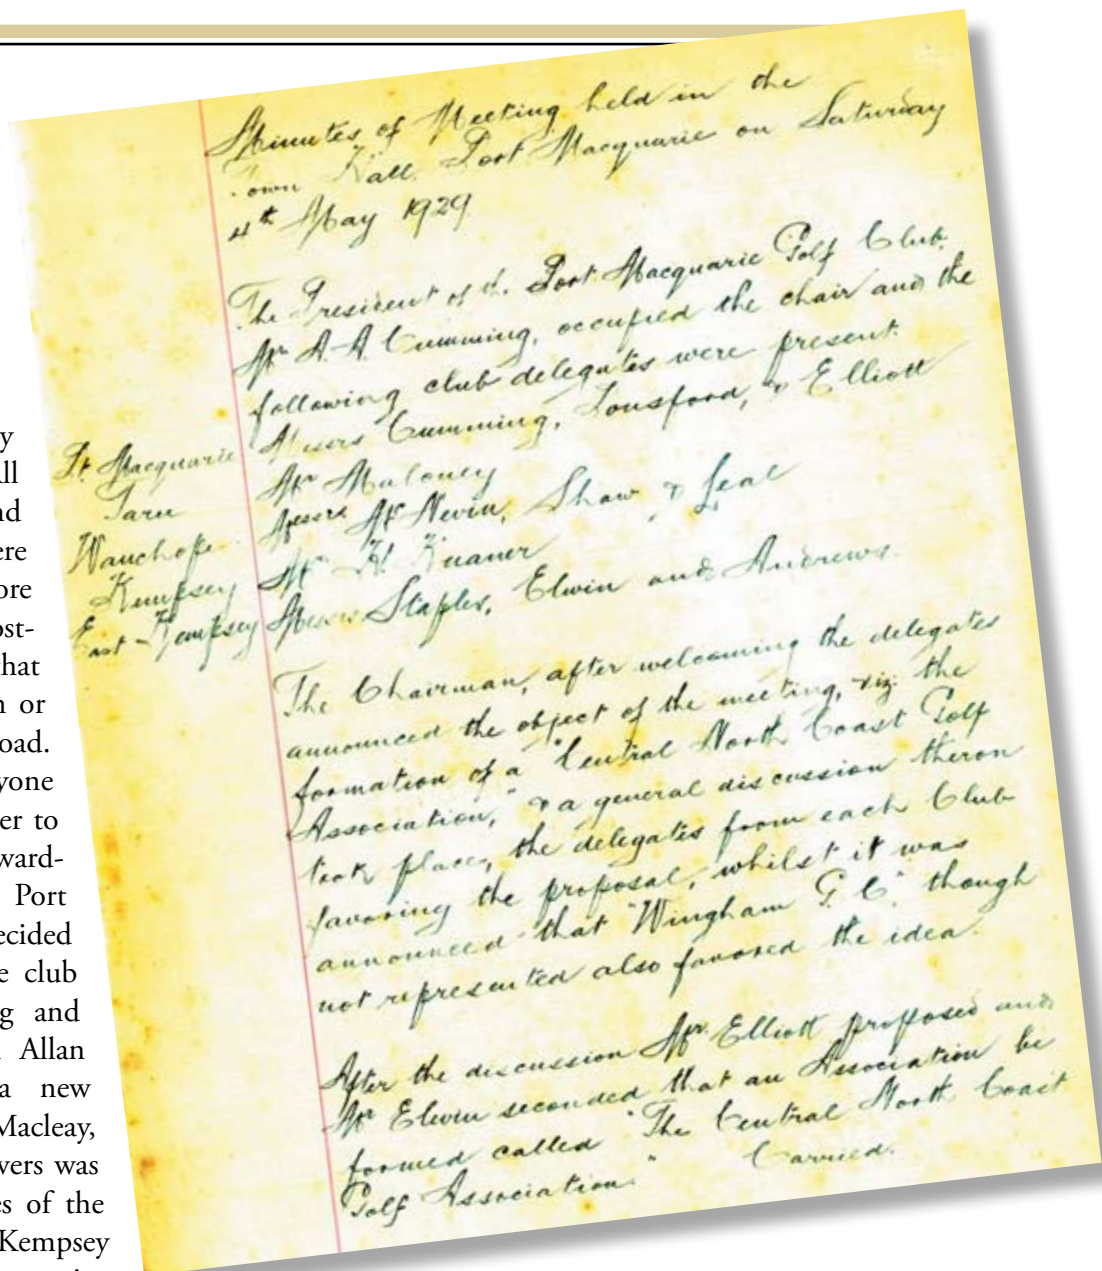 y
All
nd
ere
ore
ost-
that
n or
oad.
yone
er to
ward-
Port
ecided
e club
g and
Allan
a new
Macleay,
vers was
es of the
Kempsey
Minutes of Meeting held in the
Town Hall. Port Macquarie on Saturday
4th May 1929
The President of the Port Macquarie Golf Club.
Mr A. A. Cumming, occupied the chair and the
following club delegates were present.
Pt. Macquarie Messrs Cumming, Lonsford, & Elliott
Taree Mr Maloney
Wauchope Messrs McNevin, Shaw & Seal
Kempsey Mr H.
East Kempsey Messrs Staples, Elwin and Andrews.
The Chairman, after welcoming the delegates
announced the object of the meeting, viz. the
formation of a "Central North Coast Golf
Association," & a general discussion theron
took place, the delegates from each Club
favoring the proposal, whilst it was
announced that "Wingham G. C." though
not represented also favored the idea.
After the discussion Mr. Elliott proposed and
Mr Elwin seconded that an Association be
formed called "The Central North Coast
Golf Association." Carried.